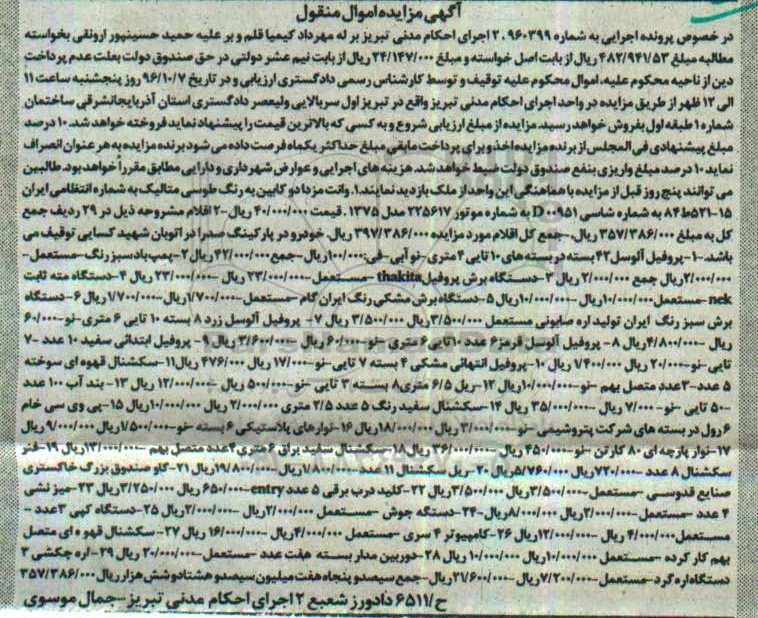 آگهی مزایده اموال منقول
در خصوص پرونده اجرایی به شماره ۹۶۰۳۹۹.۲ اجرای احکام مدنی تبریز بر له مهرداد کیمیا قلم و بر علیه حمید حسینپور ارونقی بخواسته
مطالبه مبلغ ۴۸۲/۹۴۱/۵۳ ریال از بابت اصل خواسته و مبلغ ۲۴/۱۴۷/۰۰۰ ریال از بابت نیم عشر دولتی در حق صندوق دولت بعلت عدم پرداخت
دین از ناحیه محکوم علیه، اموال محکوم علیه توقیف و توسط کارشناس رسمی دادگستری ارزیابی و در تاریخ ۹۶/۱۰/۷ روز پنجشنبه ساعت ۱۱
الی ۱۲ ظهر از طریق مزایده در واحد اجرای احکام مدنی تبریز واقع در تبریز اول سربالایی ولیعصر دادگستری استان آذربایجانشرقی ساختمان
شماره ۱ طبقه اول بفروش خواهد رسید. مزایده از مبلغ ارزیابی شروع و به کسی که بالاترین قیمت را پیشنهاد نماید فروخته خواهد شد. ۱۰ درصد
مبلغ پیشنهادی فی المجلس از برنده مزایده اخذ و برای پرداخت مابقی مبلغ حداکثر یکماه فرصت داده می شود برنده مزایده به هر عنوان انصراف
نماید ۱۰ درصد مبلغ واریزی بنفع صندوق دولت ضبط خواهد شد. هزینه های اجرایی و عوارض شهرداری و دارایی مطابق مقررا خواهد بود. طالبین
می توانند پنج روز قبل از مزایده با هماهنگی این واحد از ملک بازدید نمایند.۱. وانت مزدا دو کابین به رنگ طوسی متالیک به شماره انتظامی ایران
۱۵-۵۲۱ط۸۴ به شماره شاسی D۰۰۹۵۱ به شماره موتور ۲۲۵۶۱۷ مدل ۱۳۷۵ . قیمت ۴۰/۰۰۰/۰۰۰ ریال-۲ اقلام مشروحه ذیل در ۲۹ ردیف جمع
کل به مبلغ ۳۵۷/۳۸۶/۰۰۰ ریال.-جمع کل اقلام مورد مزایده ۳۹۷/۳۸۶/۰۰۰ ریال. خودرو در پارکینگ صدرا در اتوبان شهید کسایی توقیف می
باشد.-۱- پروفیل آلوسل ۴۲ بسته در بسته های ۱۰ تایی ۴ متری-نو آبی-فی:۱۰۰/۰۰۰ریال-جمع ۴۲/۰۰۰/۰۰۰ ریال ۲-پمپ باد سبز رنگ-مستعمل-
۲/۰۰۰/۰۰۰ریال جمع ۲/۰۰۰/۰۰۰ ریال ۳-دستگاه برش پروفیل thakita -مستعمل-۲۳/۰۰۰/۰۰۰ ریال -۲۳/۰۰۰/۰۰۰ ریال ۴-دستگاه مته ثابت
nck -مستعمل-۱۰/۰۰۰/۰۰۰ریال -۱۰/۰۰۰/۰۰۰ریال ۵-دستگاه برش مشکی رنگ ایران گام -مستعمل-۱/۷۰۰/۰۰۰ریال-۱/۷۰۰/۰۰۰ریال ۶-دستگاه
برش سبز رنگ ایران تولید اره صابونی مستعمل ۳/۵۰۰/۰۰۰ ریال ۳/۵۰۰/۰۰۰ ریال ۷- پروفیل آلوسل زرد ۸ بسته ۱۰ تایی ۶ متری-نو-۶۰/۰۰۰
ریال -۴/۸۰۰/۰۰۰ریال ۸- پروفیل آلوسل قرمز ۶ عدد ۱۰ تایی ۶ متری -نو-۶۰/۰۰۰ ریال -۳/۶۰۰/۰۰۰ ریال ۹- پروفیل ابتدائی سفید ۱۰ عدد ۷-
تایی-نو-۲۰/۰۰۰ ریال ۱/۴۰۰/۰۰۰ ریال ۱۰-پروفیل انتهائی مشکی ۴ بسته ۷ تایی -نو-۱۷/۰۰۰ ریال ۴۷۶/۰۰۰ ریال ۱۱-سکشنال قهوه ای سوخته
۵ عدد-۳عدد متصل بهم -نو-۱۰/۰۰۰/۰۰۰ریال ۱۲-ریل ۶/۵ متری ۸ بسته ۳ تایی -نو-۵۰۰/۰۰۰ ریال-۱۲/۰۰۰/۰۰۰ ریال ۱۳- بند آب ۱۰۰ عدد
-۵۰ تایی -نو-۷/۰۰۰ ریال-۳۵/۰۰۰/۰۰۰ ریال ۱۴-سکشنال سفید رنگ ۵ عدد ۲/۵ متری ۲/۰۰۰/۰۰۰ ریال ۱۰/۰۰۰/۰۰۰ریال ۱۵-پی وی سی خام
۶ رول در بسته های شرکت پتروشیمی -نو-۳/۰۰۰/۰۰۰ ریال-۱۸/۰۰۰/۰۰۰ریال ۱۶-نوارهای پلاستیکی ۶ بسته -نو-۱/۵۰۰/۰۰۰ریال ۹/۰۰۰/۰۰۰ ریال
۱۷-نوار پارچه ای ۸۰ کارتن -نو-۴۵۰/۰۰۰ ریال -۳۶/۰۰۰/۰۰۰ ریال ۱۸-سکشنال سفید براق ۶ متری ۴عدد متصل بهم -۱۳/۰۰۰/۰۰۰ریال ۱۹-فنر
سکشنال ۸ عدد -۷۲۰/۰۰۰ ریال ۵/۷۶۰/۰۰۰ریال ۲۰-ریل سکشنال ۱۱ عدد -۱/۸۰۰/۰۰۰ریال -۱۹/۸۰۰/۰۰۰ریال ۲۱-گاو صندوق بزرگ خاکستری
صنایع قدوسی -مستعمل-۳/۵۰۰/۰۰۰ریال ۳/۵۰۰/۰۰۰ ریال ۲۲-کلید درب برقی ۵ عدد entry-۶۵۰/۰۰۰ ریال ۳/۲۵۰/۰۰۰ ریال ۲۳-میز نشی
۴ عدد -مستعمل-۲/۰۰۰/۰۰۰ریال ۸/۰۰۰/۰۰۰ریال-۲۴-دستگاه جوش -مستعمل ۲/۰۰۰/۰۰۰ریال -۲/۰۰۰/۰۰۰ریال ۲۵-دستگاه کپی ۳ عدد -
مستعمل ۴/۰۰۰/۰۰۰ ریال -۱۲/۰۰۰/۰۰۰ریال ۲۶-کامپیوتر ۴ سری -مستعمل ۴/۰۰۰/۰۰۰ریال -۱۶/۰۰۰/۰۰۰ ریال ۲۷- سکشنال قهوه ای متصل
بهم کار کرده -مستعمل ۱۰/۰۰۰/۰۰۰ریال ۱۰/۰۰۰/۰۰۰ ریال ۲۸-دوربین مدار بسته هفت عدد -مستعمل-۲۰/۰۰۰/۰۰۰ ریال ۲۹-اره چکشی ۳
دستگاه اره گرد-مستعمل-۷/۲۰۰/۰۰۰ریال -۲۱/۶۰۰/۰۰۰ریال-جمع سیصد و پنجاه هفت میلیون سیصد و هشتاد و شش هزار ریال ۳۵۷/۳۸۶/۰۰۰
ح/۶۵۱۱ دادورز شعبع ۲ اجرای احکام مدنی تبریز-جمال موسوی